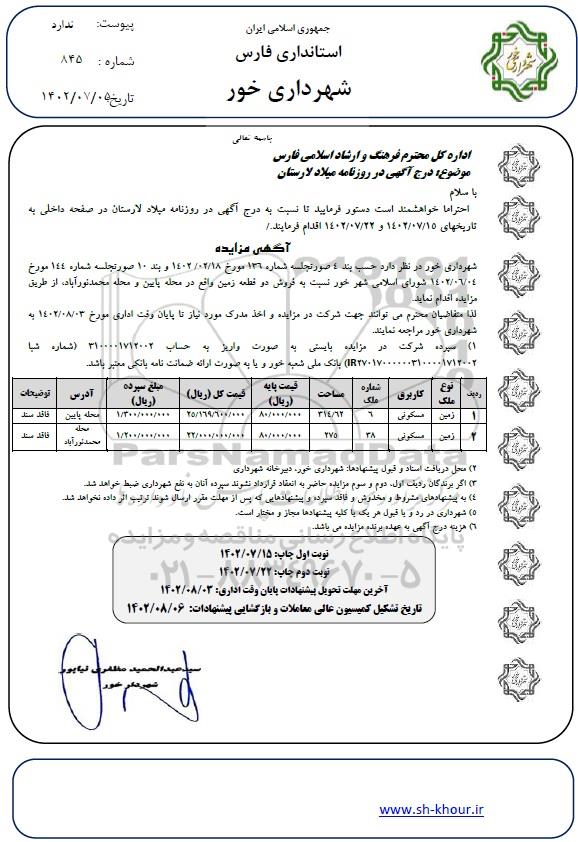 جمهوری اسلامی ایران
استانداری فارس
شهرداری خور
پیوست: ندارد
شماره : ۸۴۵
تاریخ: ۱۴۰۲/۰۷/۰۵
باسمه تعالی
اداره کل محترم فرهنگ و ارشاد اسلامی فارس
موضوع: درج آگهی در روزنامه میلاد لارستان
با سلام
احتراما خواهشمند است دستور فرمایید تا نسبت به درج آگهی در روزنامه میلاد لارستان در صفحه داخلی به
تاریخهای ۱۴۰۲/۰۷/۱۵ و ۱۴۰۲/۰۷/۲۲ اقدام فرمایند./
آگهی مزایده
شهرداری خور در نظر دارد حسب بند ۴ صورتجلسه شماره ۱۳۶ مورخ ۱۴۰۲/۰۲/۱۸ و بند ۱۰ صورتجلسه شماره ۱۴۴ مورخ
۱۴۰۲/۰۶/۰۴ شورای اسلامی شهر خور نسبت به فروش دو قطعه زمین واقع در محله پایین و محله محمدنورآباد، از طریق
مزایده اقدام نماید.
لذا متقاضیان محترم می توانند جهت شرکت در مزایده و اخذ مدرک مورد نیاز تا پایان وقت اداری مورخ ۱۴۰۲/۰۸/۰۳ به
شهرداری خور مراجعه نمایند.
۱) سپرده شرکت در مزایده بایستی به صورت واریز به حساب ۳۱۰۰۰۰۱۷۱۲۰۰۲ (شماره شبا
IR۲۷۰۱۷۰۰۰۰۰۰۳۱۰۰۰۰۱۷۱۲۰۰۲) بانک ملی شعبه خور و یا به صورت ارائه ضمانت نامه بانکی معتبر باشد.
ردیف نوع ملک کاربری شماره ملک مساحت قیمت پایه (ریال) قیمت کل (ریال) مبلغ سپرده (ریال) آدرس توضیحات
۱ زمین مسکونی ۶ ۳۱۴/۶۲ ۸۰/۰۰۰/۰۰۰ ۲۵/۱۶۹/۶۰۰/۰۰۰ ۱/۳۰۰/۰۰۰/۰۰۰ محله پایین فاقد سند
۲ زمین مسکونی ۳۸ ۲۷۵ ۸۰/۰۰۰/۰۰۰ ۲۲/۰۰۰/۰۰۰/۰۰۰ ۱/۲۰۰/۰۰۰/۰۰۰ محله محمدنورآباد فاقد سند
۲) محل دریافت اسناد و قبول پیشنهادها: شهرداری خور، دبیرخانه شهرداری
۳) اگر برندگان ردیف اول، دوم و سوم مزایده حاضر به انعقاد قرارداد نشوند سپرده آنان به نفع شهرداری ضبط خواهد شد.
۴) به پیشنهادهای مشروط و مخدوش و فاقد سپرده و پیشنهادهایی که پس از مهلت مقرر ارسال شوند ترتیب اثر داده نخواهد شد.
۵) شهرداری در رد و یا قبول هر یک یا کلیه پیشنهادها مجاز و مختار است.
۶) هزینه درج آگهی به عهده برنده مزایده می باشد.
نوبت اول چاپ: ۱۴۰۲/۰۷/۱۵
نوبت دوم چاپ: ۱۴۰۲/۰۷/۲۲
آخرین مهلت تحویل پیشنهادات پایان وقت اداری: ۱۴۰۲/۰۸/۰۳
تاریخ تشکیل کمیسیون عالی معاملات و بازگشایی پیشنهادات: ۱۴۰۲/۰۸/۰۶
ParsNamadData
پایگاه اطلاع رسانی مناقصه و مزایده
۰۲۱-۸۸۳۴۹۶۷۰-۵
سیدعبدالحمید مظفری نیاپور
شهردار خور
www.sh-khour.ir